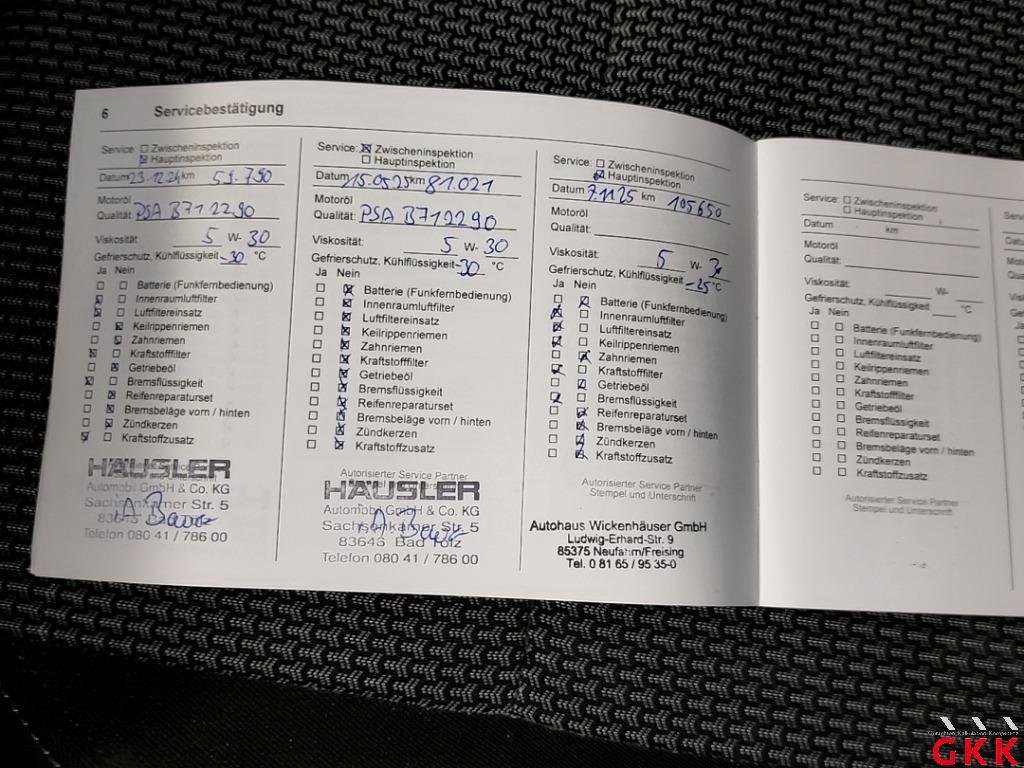 6 Servicebestätigung
Service: ☐ Zwischeninspektion
☒ Hauptinspektion
Datum 23.12.24 km 59.790
Motoröl
Qualität: PSA B71 2290
Viskosität: 5 W- 30
Gefrierschutz, Kühlflüssigkeit -30 °C
Ja Nein
Batterie (Funkfernbedienung)
Innenraumluftfilter
Luftfiltereinsatz
Keilrippenriemen
Zahnriemen
Kraftstofffilter
Getriebeöl
Bremsflüssigkeit
Reifenreparaturset
Bremsbeläge vorn / hinten
Zündkerzen
Kraftstoffzusatz
HÄUSLER
Automobil GmbH & Co. KG
Sachsenkamer Str. 5
Telefon 080 41 / 786 00
Service: ☒ Zwischeninspektion
☐ Hauptinspektion
Datum 15.05.25 km 81.021
Motoröl
Qualität: PSA B712290
Viskosität: 5 W- 30
Gefrierschutz, Kühlflüssigkeit -30 °C
Ja Nein
Batterie (Funkfernbedienung)
Innenraumluftfilter
Luftfiltereinsatz
Keilrippenriemen
Zahnriemen
Kraftstofffilter
Getriebeöl
Bremsflüssigkeit
Reifenreparaturset
Bremsbeläge vorn / hinten
Zündkerzen
Kraftstoffzusatz
Autorisierter Service Partner
HÄUSLER
Automobil GmbH & Co. KG
Sachsenkamer Str. 5
83646 Bad Tölz
Telefon 080 41 / 786 00
Service: ☐ Zwischeninspektion
☒ Hauptinspektion
Datum 7.11.25 km 105650
Motoröl
Qualität:
Viskosität: 5 W- 30
Gefrierschutz, Kühlflüssigkeit -25 °C
Ja Nein
Batterie (Funkfernbedienung)
Innenraumluftfilter
Luftfiltereinsatz
Keilrippenriemen
Zahnriemen
Kraftstofffilter
Getriebeöl
Bremsflüssigkeit
Reifenreparaturset
Bremsbeläge vorn / hinten
Zündkerzen
Kraftstoffzusatz
Autorisierter Service Partner
Stempel und Unterschrift
Autohaus Wickenhäuser GmbH
Ludwig-Erhard-Str. 9
85375 Neufahrn/Freising
Tel. 0 81 65 / 95 35-0
Service: ☐ Zwischeninspektion
☐ Hauptinspektion
Datum km
Motoröl
Qualität:
Viskosität: W-
Gefrierschutz, Kühlflüssigkeit °C
Ja Nein
Batterie (Funkfernbedienung)
Innenraumluftfilter
Luftfiltereinsatz
Keilrippenriemen
Zahnriemen
Kraftstofffilter
Getriebeöl
Bremsflüssigkeit
Reifenreparaturset
Bremsbeläge vorn / hinten
Zündkerzen
Kraftstoffzusatz
Autorisierter Service Partner
Stempel und Unterschrift
GKK